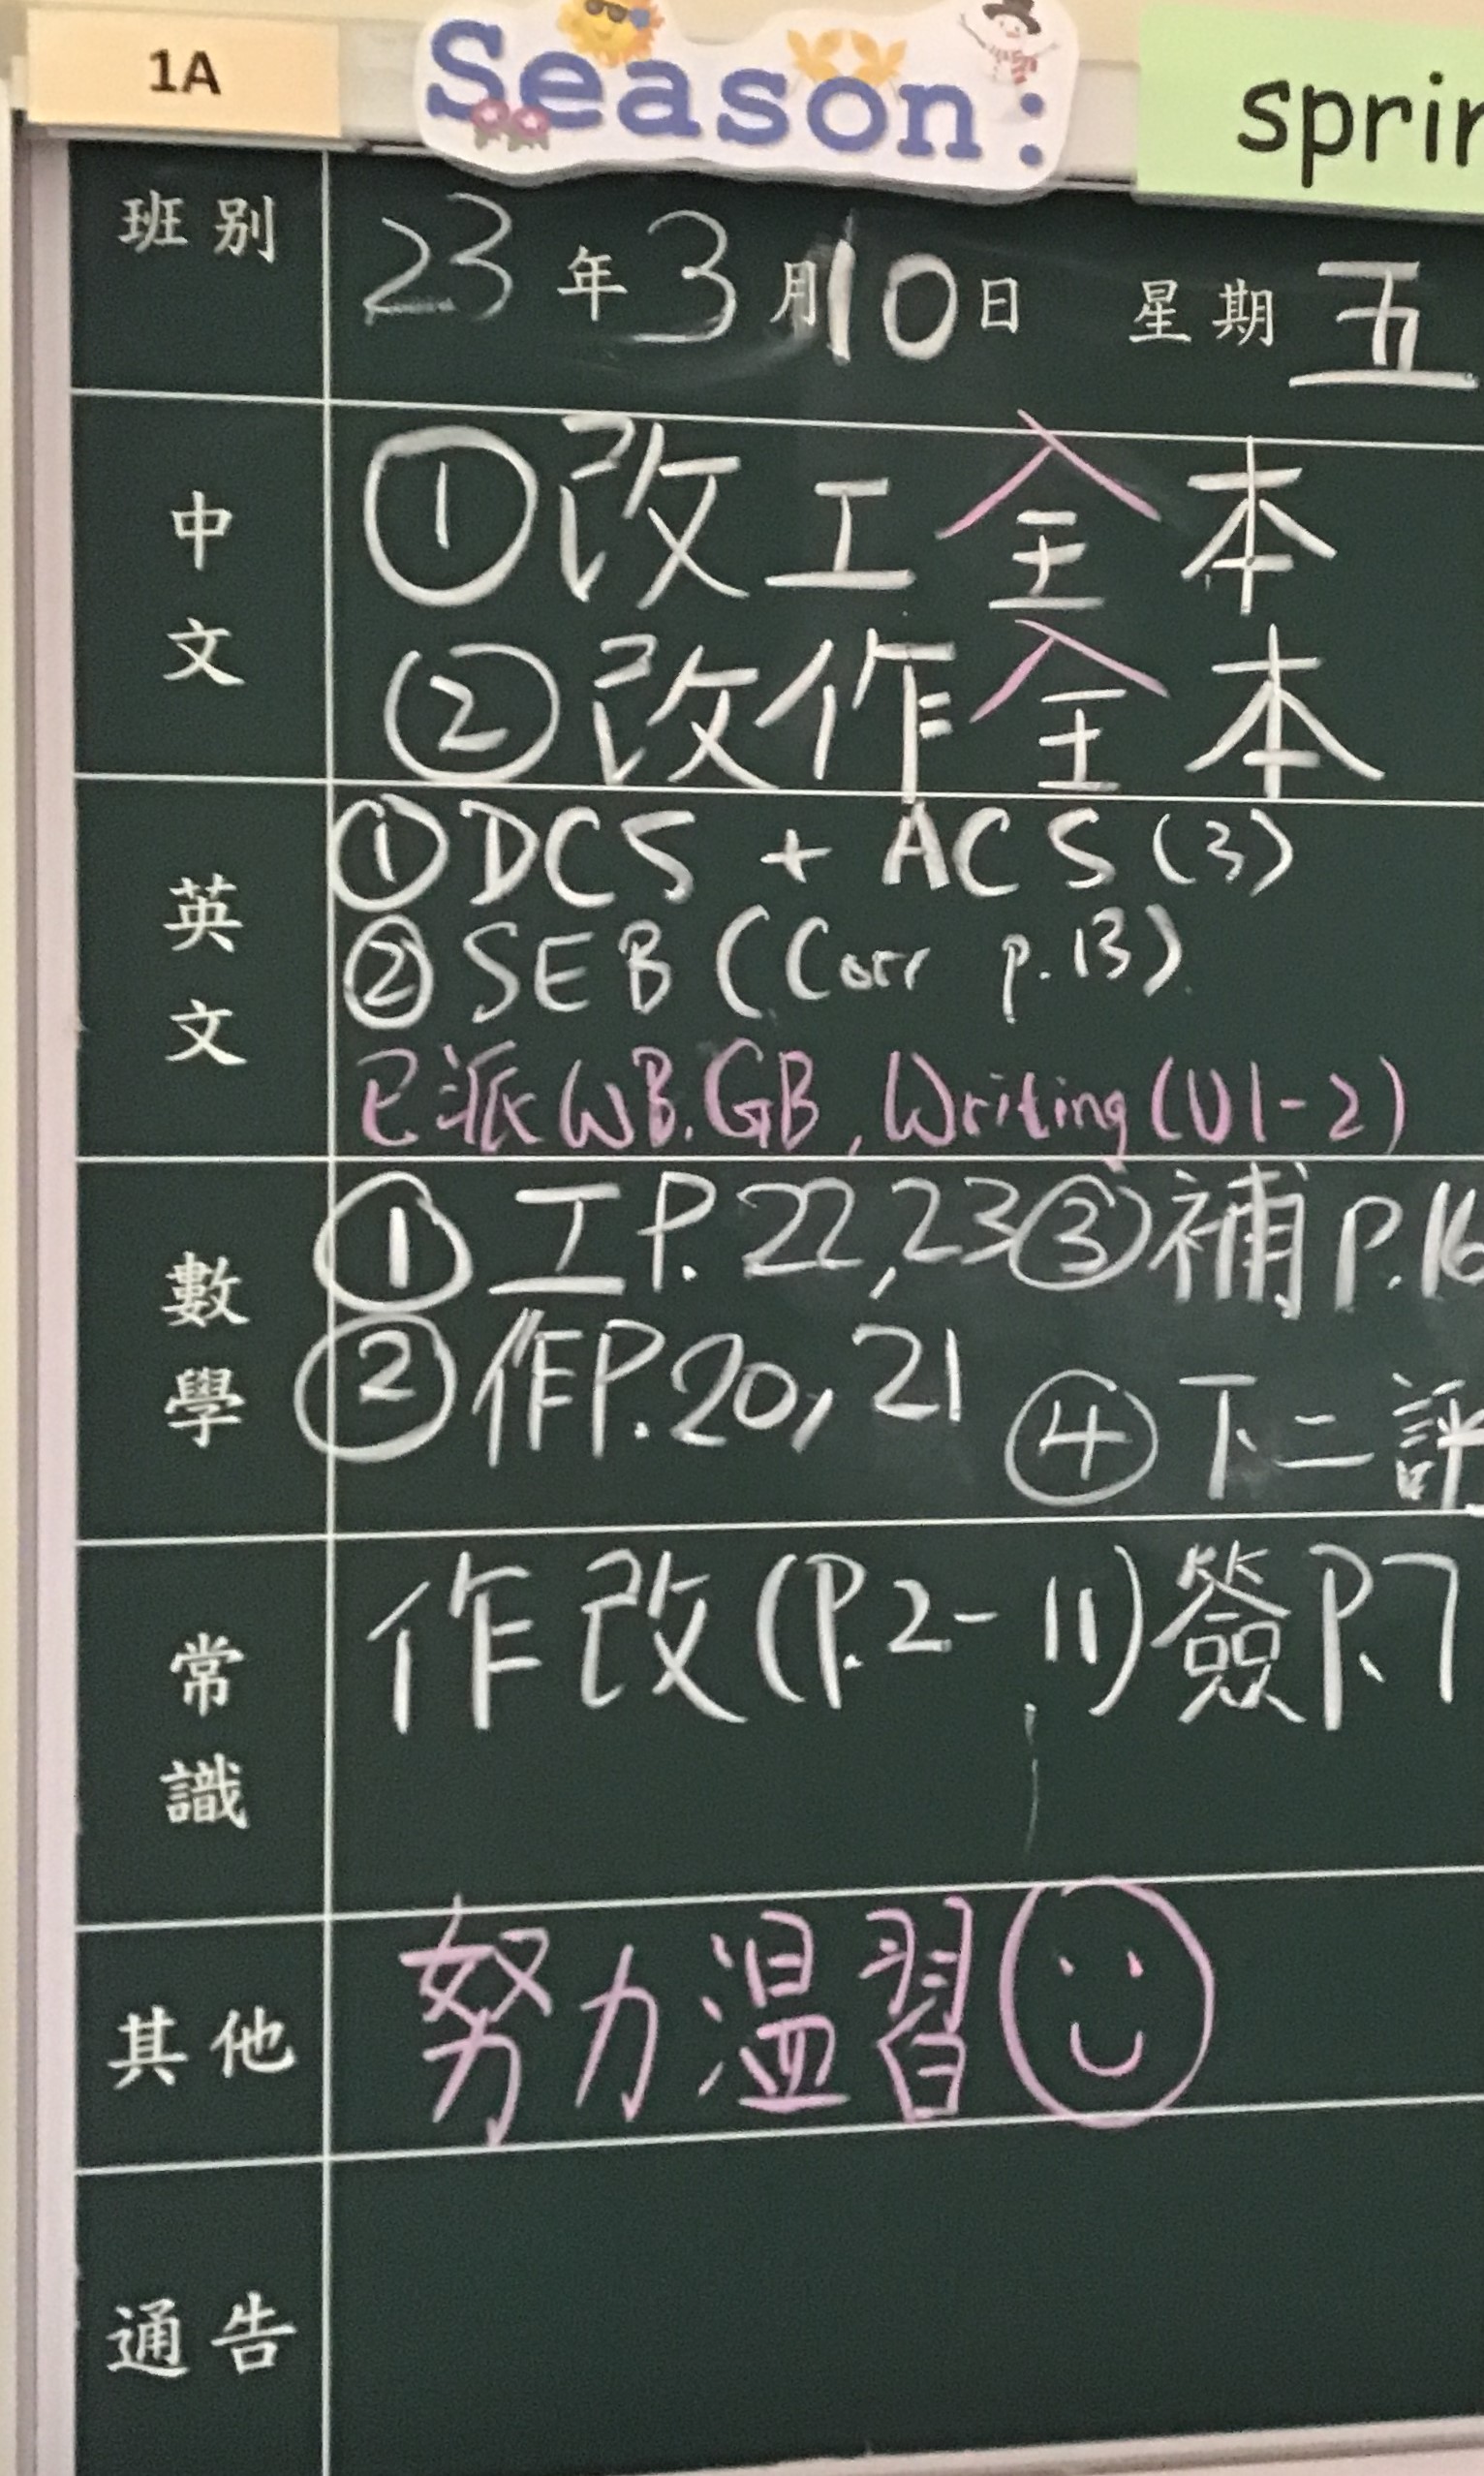 1A
Season:
班別
23年3月10日 星期五
中文
①改工全本
②改作全本
英文
①DCS + ACS (3)
②SEB (Corr p.13)
已派WB.GB, Writing (U1-2)
數學
①工P.22,23 ③補P.16
②作P.20,21 ④下二評
常識
作改(P.2-11)簽P.7
其他
努力溫習
通告